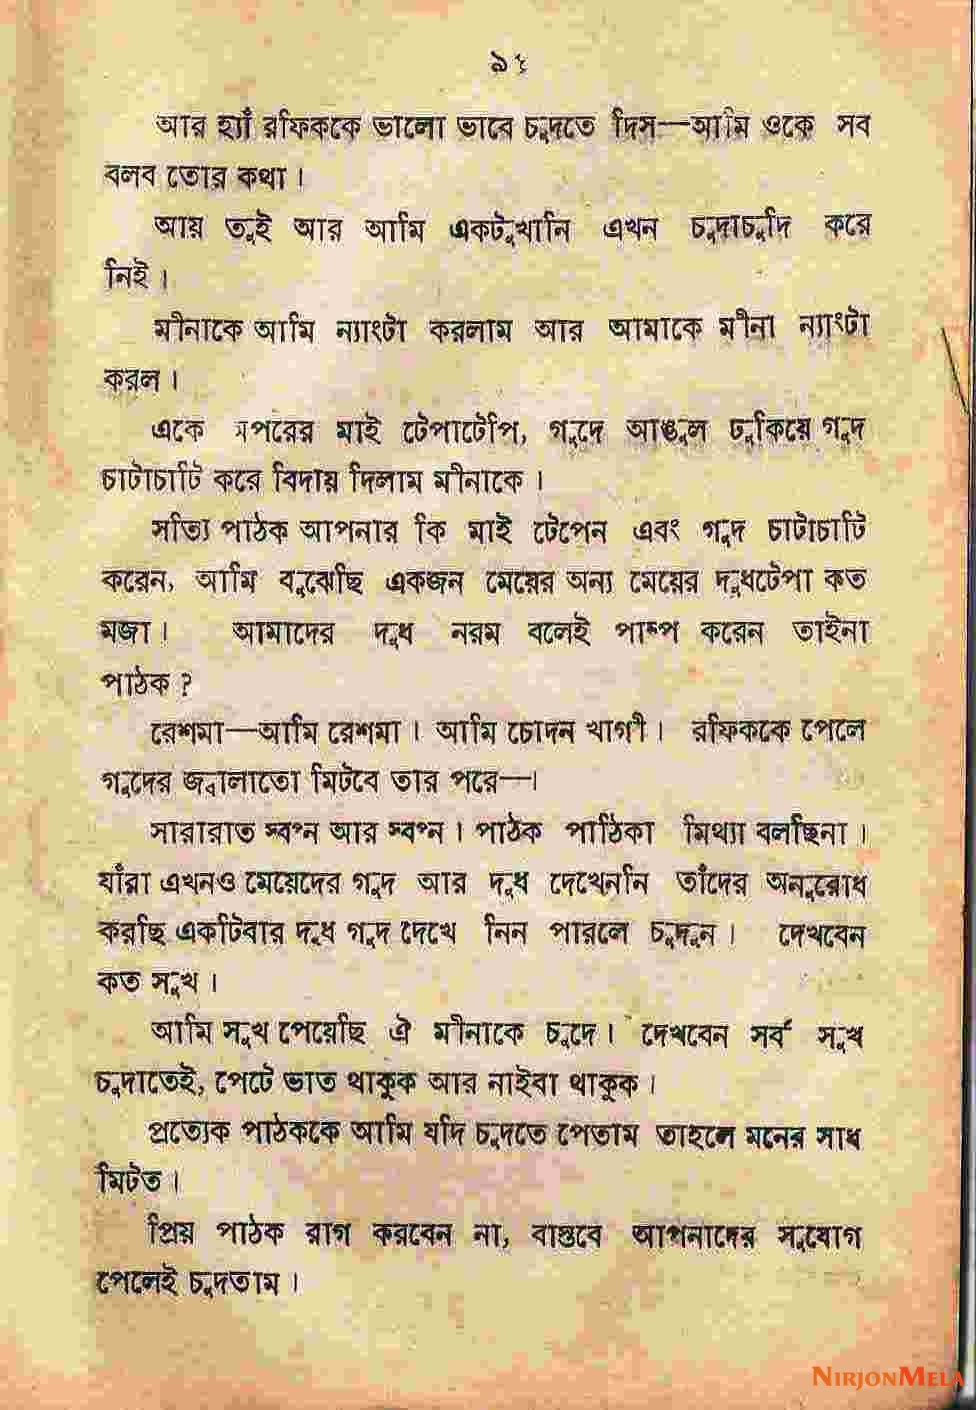 আর হ্যাঁ রফিককে ভালো ভাবে চুদতে দিস—আমি ওকে সব
বলব তোর কথা।
আয় তুই আর আমি একটুখানি এখন চুদাচুদি করে
নিই।
মীনাকে আমি ন্যাংটা করলাম আর আমাকে মীনা ন্যাংটা
করল।
একে অপরের মাই টেপাটেপি, গুদে আঙুল ঢুকিয়ে গুদ
চাটাচাটি করে বিদায় দিলাম মীনাকে।
সত্যি পাঠক আপনার কি মাই টেপেন এবং গুদ চাটাচাটি
করেন, আমি বুঝেছি একজন মেয়ের অন্য মেয়ের দুধটেপা কত
মজা। আমাদের দুধ নরম বলেই পাম্প করেন তাইনা
পাঠক?
রেশমা—আমি রেশমা। আমি চোদন খাগী। রফিককে পেলে
গুদের জ্বালাতো মিটবে তার পরে—।
সারারাত স্বপ্ন আর স্বপ্ন। পাঠক পাঠিকা মিথ্যা বলছিনা।
যাঁরা এখনও মেয়েদের গুদ আর দুধ দেখেননি তাঁদের অনুরোধ
করছি একটিবার দুধ গুদ দেখে নিন পারলে চুদুন। দেখবেন
কত সুখ।
আমি সুখ পেয়েছি ঐ মীনাকে চুদে। দেখবেন সর্ব সুখ
চুদাতেই, পেটে ভাত থাকুক আর নাইবা থাকুক।
প্রত্যেক পাঠককে আমি যদি চুদতে পেতাম তাহলে মনের সাধ
মিটত।
প্রিয় পাঠক রাগ করবেন না, বাস্তবে আপনাদের সুযোগ
পেলেই চুদতাম।
NIRJONMELA